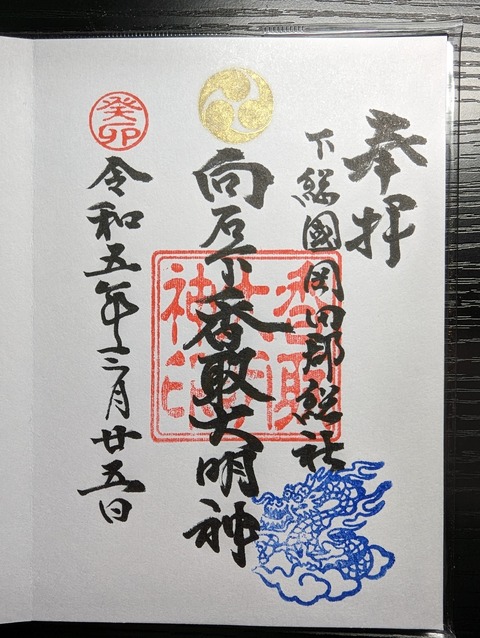 奉拝
下総國岡田郡総社
向石下香取大明神
香取大明神印
癸卯
令和五年三月廿五日